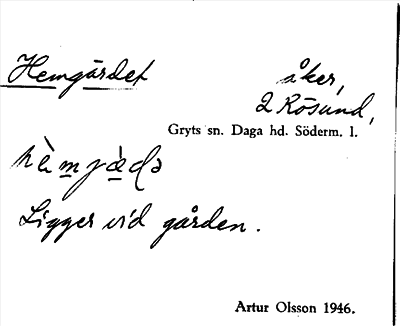 Hemgärdet åker,
2 Rösund,
Gryts sn. Daga hd. Söderm. l.
Ligger vid gården.
Artur Olsson 1946.